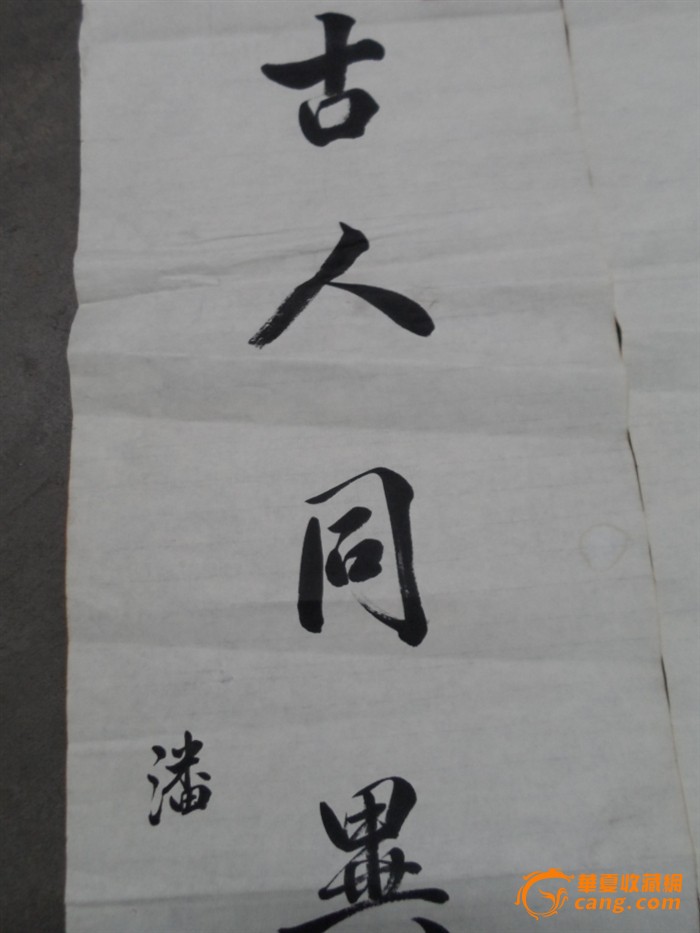 古人同異
潘
華夏收藏網
cang.com